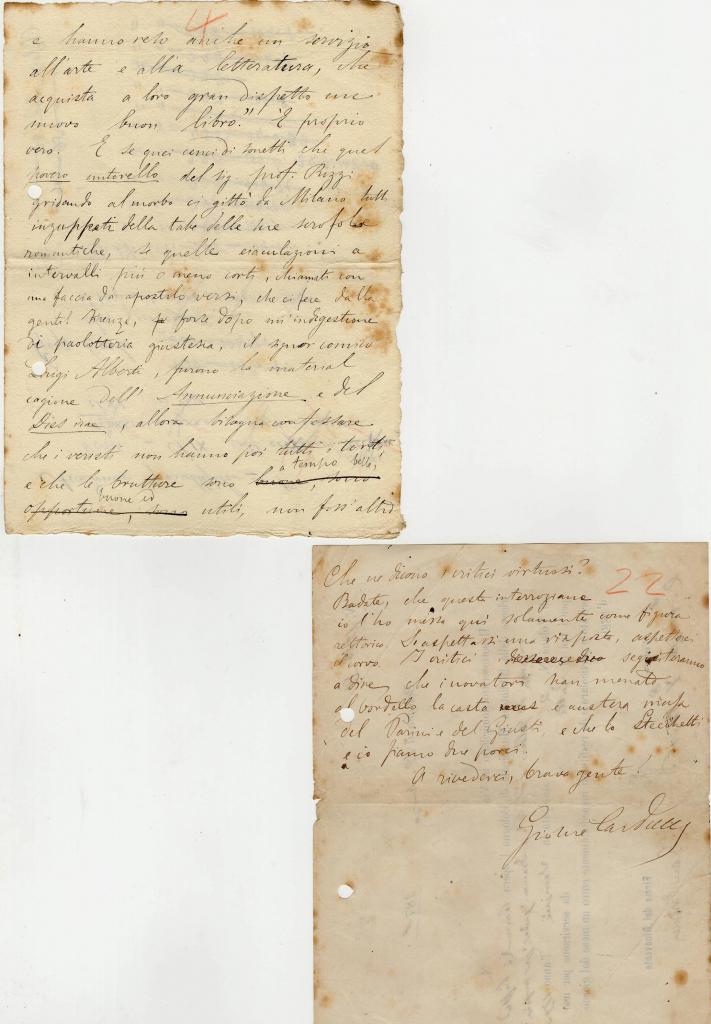 4
e hanno reso anche un servizio
all'arte e alla letteratura, che
acquista a loro gran dispetto un
nuovo buon libro." È proprio
vero. E se quei cenci di sonetti che quel
povero untorello del sig. prof. Rizzi
gridando al morbo ci gittò da Milano tutti
inzuppati della tabe delle sue scrofole
romantiche, se quelle eiaculazioni a
intervalli più o meno corti, chiamati con
una faccia da apostolo versi, che ci fece dalla
gentil Firenze, forse dopo un'indigestione
di paolottoria giustesca, il signor comico
Luigi Alberti, furono la material
cagione dell'Annunciazione e del
Dies irae, allora bisogna confessare
che i veristi non hanno poi tutti i torti
e che le brutture sono a tempo belle,
buone ed utili, non foss'altro
22
Che ne dicono i critici virtuosi?
Badate, che questa interrogazione
io l'ho messa qui solamente come figura
rettorica. Se aspettassi una risposta, aspetterei
il corvo. I critici seguiteranno
a dire, che i novatori han menato
al bordello la casta e austera musa
del Parini e del Giusti, e che lo Stecchetti
e io siamo due porci.
A rivederci, brava gente!
Giosue Carducci
Firma del Ricevente